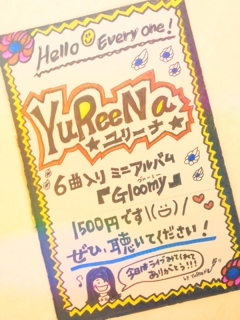 Hello Everyone!
YuReeNa
★ユリーナ★
6曲入り ミニアルバム
『Gloomy』
1500円です\(😃)/
ぜひ、聴いてください!
今日はライブみてくれて
ありがとう!!!